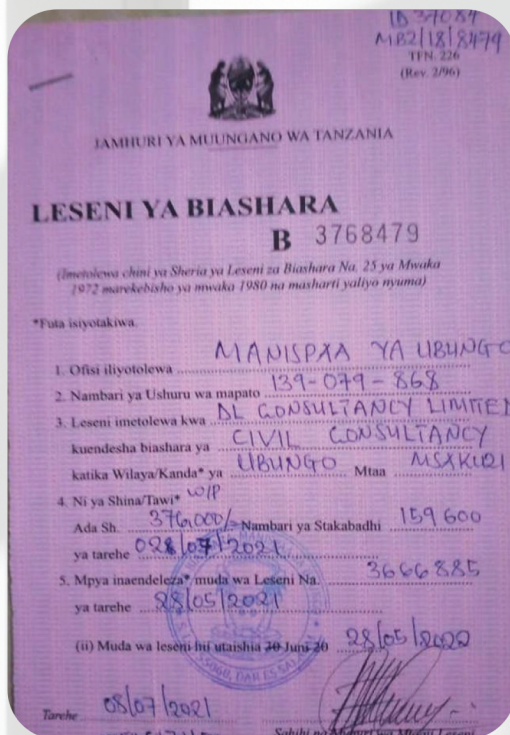 ID 37087
MB2/18/8479
TFN. 226
(Rev. 2/96)
JAMHURI YA MUUNGANO WA TANZANIA
LESENI YA BIASHARA
B 3768479
(Imetolewa chini ya Sheria ya Leseni za Biashara Na. 25 ya Mwaka
1972 marekebisho ya mwaka 1980 na masharti yaliyo nyuma)
*Futa isiyotakiwa.
1. Ofisi iliyotolewa MANISPAA YA UBUNGO
2. Nambari ya Ushuru wa mapato 139-079-868
3. Leseni imetolewa kwa DL CONSULTANCY LIMITED
kuendesha biashara ya CIVIL CONSULTANCY
katika Wilaya/Kanda* ya UBUNGO Mtaa
4. Ni ya Shina/Tawi* W/P
Ada Sh. 376,000/= Nambari ya Stakabadhi 159600
ya tarehe /07/2021
5. Mpya inaendeleza* muda wa Leseni Na. 3666885
ya tarehe 28/05/2021
(ii) Muda wa leseni hii utaishia 30 Juni 20 28/05/2022
Tarehe 08/07/2021
Sahihi na Mhuri wa Mtoaji Leseni